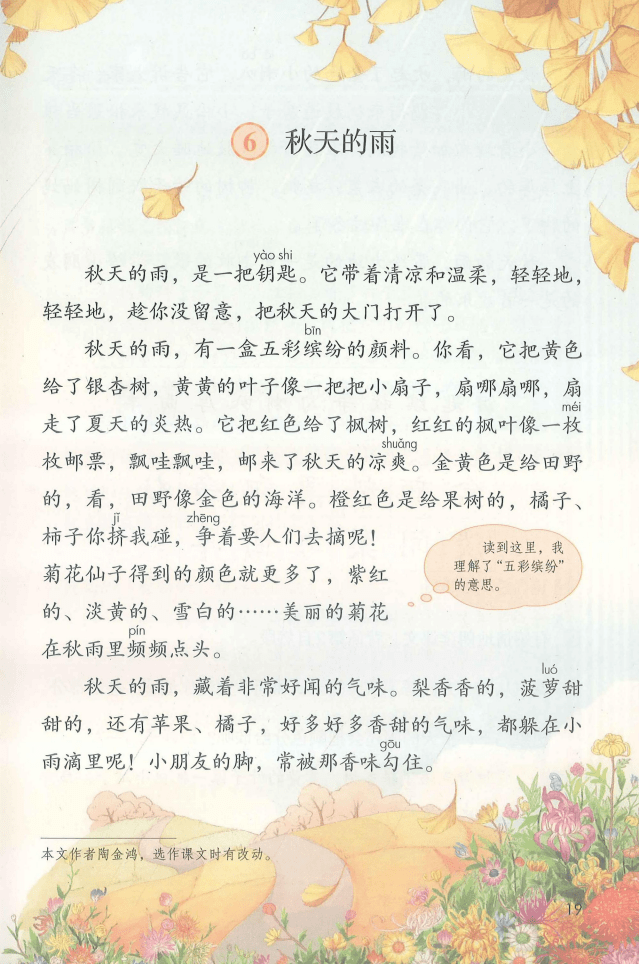 6 秋天的雨
yào shi
秋天的雨，是一把钥匙。它带着清凉和温柔，轻轻地，
轻轻地，趁你没留意，把秋天的大门打开了。
bīn
秋天的雨，有一盒五彩缤纷的颜料。你看，它把黄色
给了银杏树，黄黄的叶子像一把把小扇子，扇哪扇哪，扇
méi
走了夏天的炎热。它把红色给了枫树，红红的枫叶像一枚
shuǎng
枚邮票，飘哇飘哇，邮来了秋天的凉爽。金黄色是给田野
的，看，田野像金色的海洋。橙红色是给果树的，橘子、
jǐ zhēng
柿子你挤我碰，争着要人们去摘呢！
菊花仙子得到的颜色就更多了，紫红
的、淡黄的、雪白的……美丽的菊花
pín
在秋雨里频频点头。
读到这里，我
理解了“五彩缤纷”
的意思。
luó
秋天的雨，藏着非常好闻的气味。梨香香的，菠萝甜
甜的，还有苹果、橘子，好多好多香甜的气味，都躲在小
gōu
雨滴里呢！小朋友的脚，常被那香味勾住。
本文作者陶金鸿，选作课文时有改动。
19